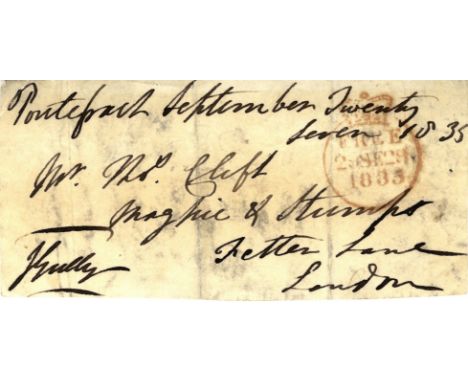 Pontefract September Twenty
Seven 1835
FREE
29 SE 29
1835
Mr. Thos. Clift
Magpie & Stumps
Fetter Lane
London
J Gully